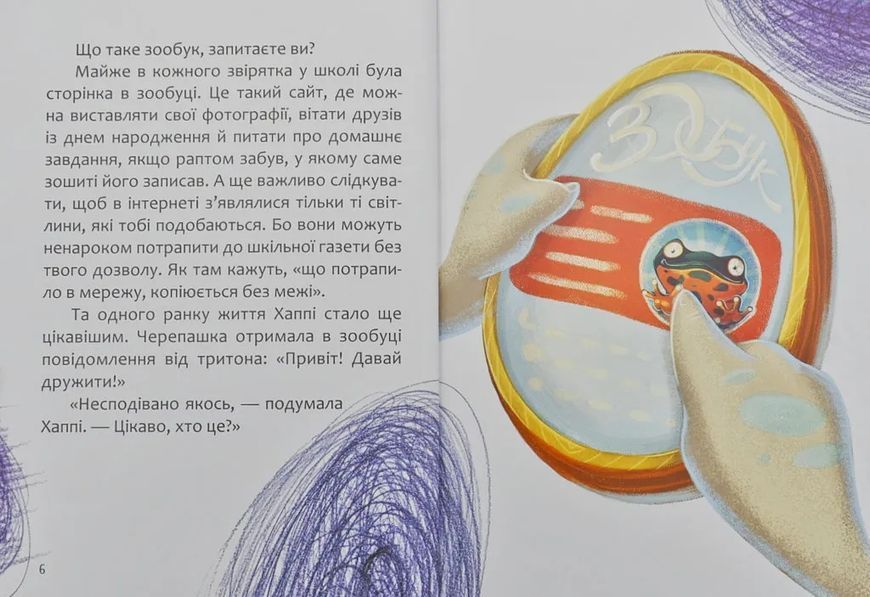 Що таке зообук, запитаєте ви?
Майже в кожного звірятка у школі була
сторінка в зообуці. Це такий сайт, де мож-
на виставляти свої фотографії, вітати друзів
із днем народження й питати про домашнє
завдання, якщо раптом забув, у якому саме
зошиті його записав. А ще важливо слідкува-
ти, щоб в інтернеті з’являлися тільки ті світ-
лини, які тобі подобаються. Бо вони можуть
ненароком потрапити до шкільної газети без
твого дозволу. Як там кажуть, «що потрапи-
ло в мережу, копіюється без межі».
Та одного ранку життя Хаппі стало ще
цікавішим. Черепашка отримала в зообуці
повідомлення від тритона: «Привіт! Давай
дружити!»
«Несподівано якось, — подумала
Хаппі. — Цікаво, хто це?»
6
ЗООБУК